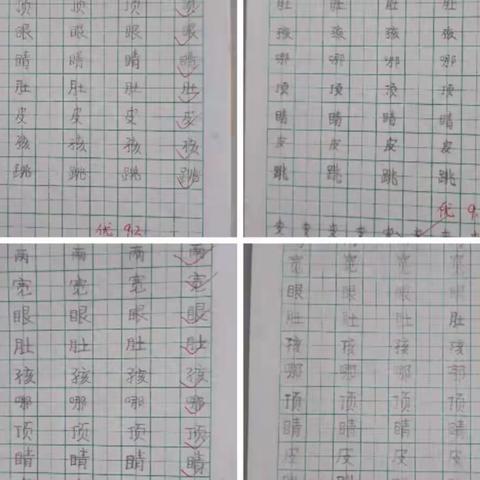 顶 顶 顶 顶
眼 眼 眼 眼
睛 睛 睛 睛
肚 肚 肚 肚
皮 皮 皮 皮
孩 孩 孩 孩
跳 跳 跳 跳
优 9.2
肚 肚 肚 肚
孩 孩 孩 孩
哪 哪 哪 哪
顶 顶 顶 顶
睛 睛 睛 睛
皮 皮 皮 皮
跳 跳 跳 跳
优 9.
变 变 变 变 变 变 变
两 两 两 两
宽 宽 宽 宽
眼 眼 眼 眼
肚 肚 肚 肚
孩 孩 孩 孩
哪 哪 哪 哪
顶 顶 顶 顶
睛 睛 睛 睛
宽 宽 宽 宽
眼 眼 眼 眼
肚 肚 肚 肚
孩 孩 孩 孩
哪 哪 哪 哪
顶 顶 顶 顶
睛 睛 睛 睛
皮 皮 皮 皮